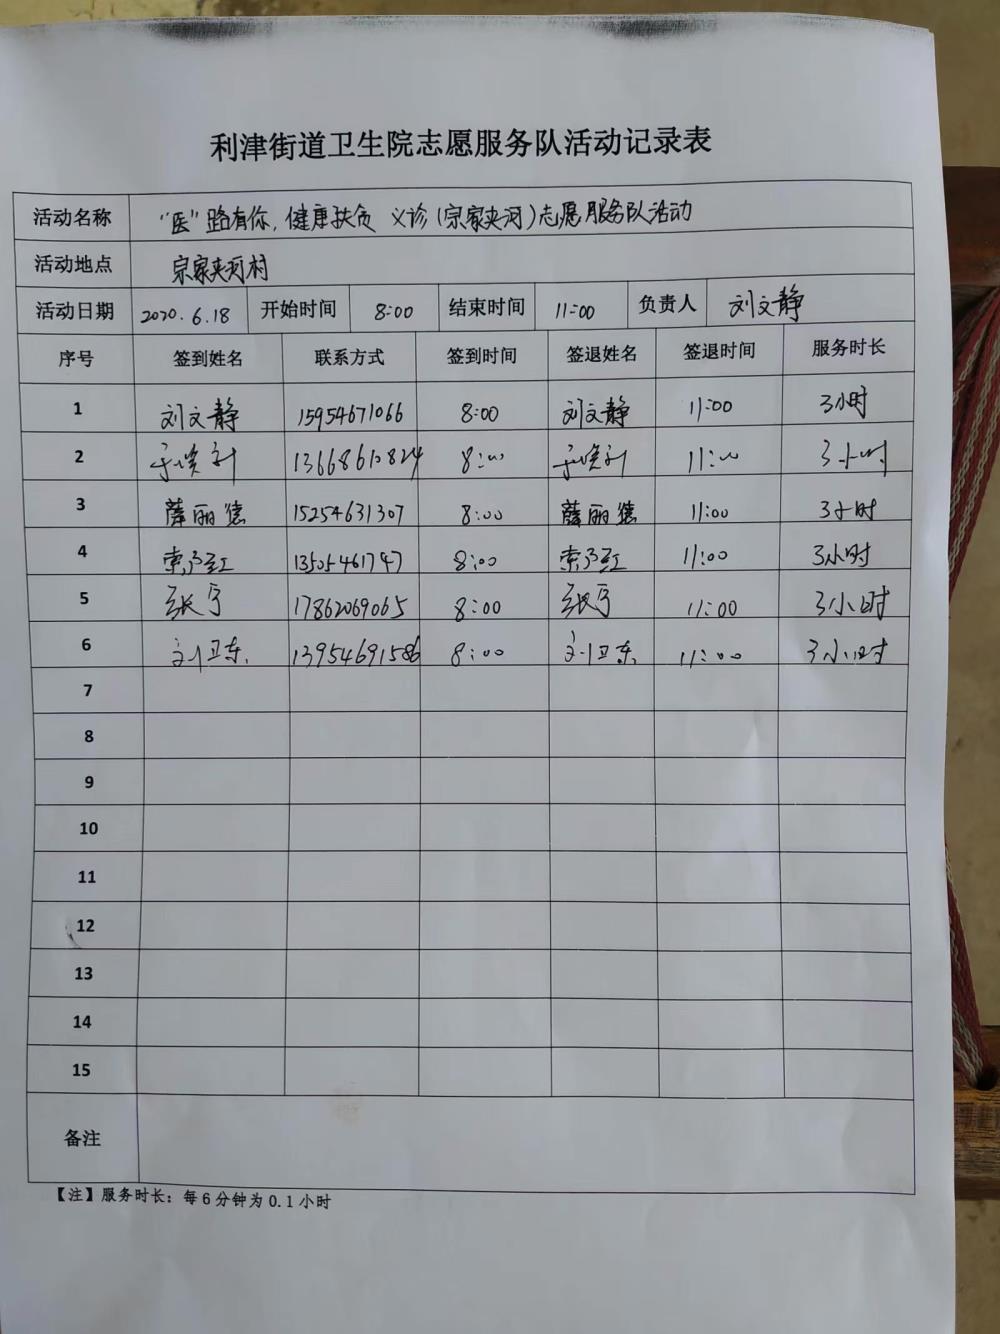 利津街道卫生院志愿服务队活动记录表
活动名称 "医"路有你,健康扶贫 义诊(宗家夹河)志愿服务队活动
活动地点 宗家夹河村
活动日期 2020.6.18 开始时间 8:00 结束时间 11:00 负责人 刘文静
序号 签到姓名 联系方式 签到时间 签退姓名 签退时间 服务时长
1 刘文静 15954671066 8:00 刘文静 11:00 3小时
2 8:00 11:00 3小时
3 薛丽德 15254631307 8:00 薛丽德 11:00 3小时
4 13505461747 8:00 11:00 3小时
5 17862069065 8:00 11:00 3小时
6 刘卫东 13954691586 8:00 刘卫东 11:00 3小时
7
8
9
10
11
12
13
14
15
备注
【注】服务时长：每6分钟为0.1小时